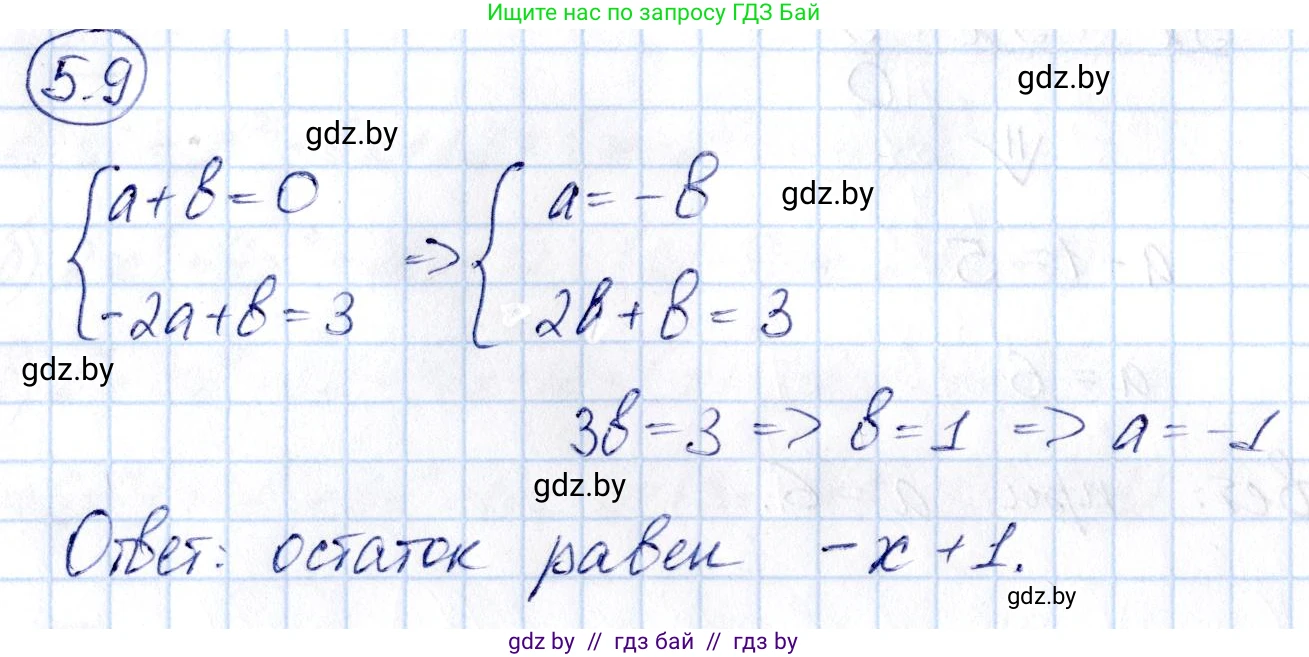 Ищите нас по запросу ГДЗ Бай
5.9
gdz.by
gdz.by
{ a+b=0 => { a=-b
gdz.by
-2a+b=3 2b+b=3
gdz.by
3b=3 => b=1 => a=-1
gdz.by
Ответ: остаток равен -x+1.
gdz.by
gdz by // гдз бай // гдз by